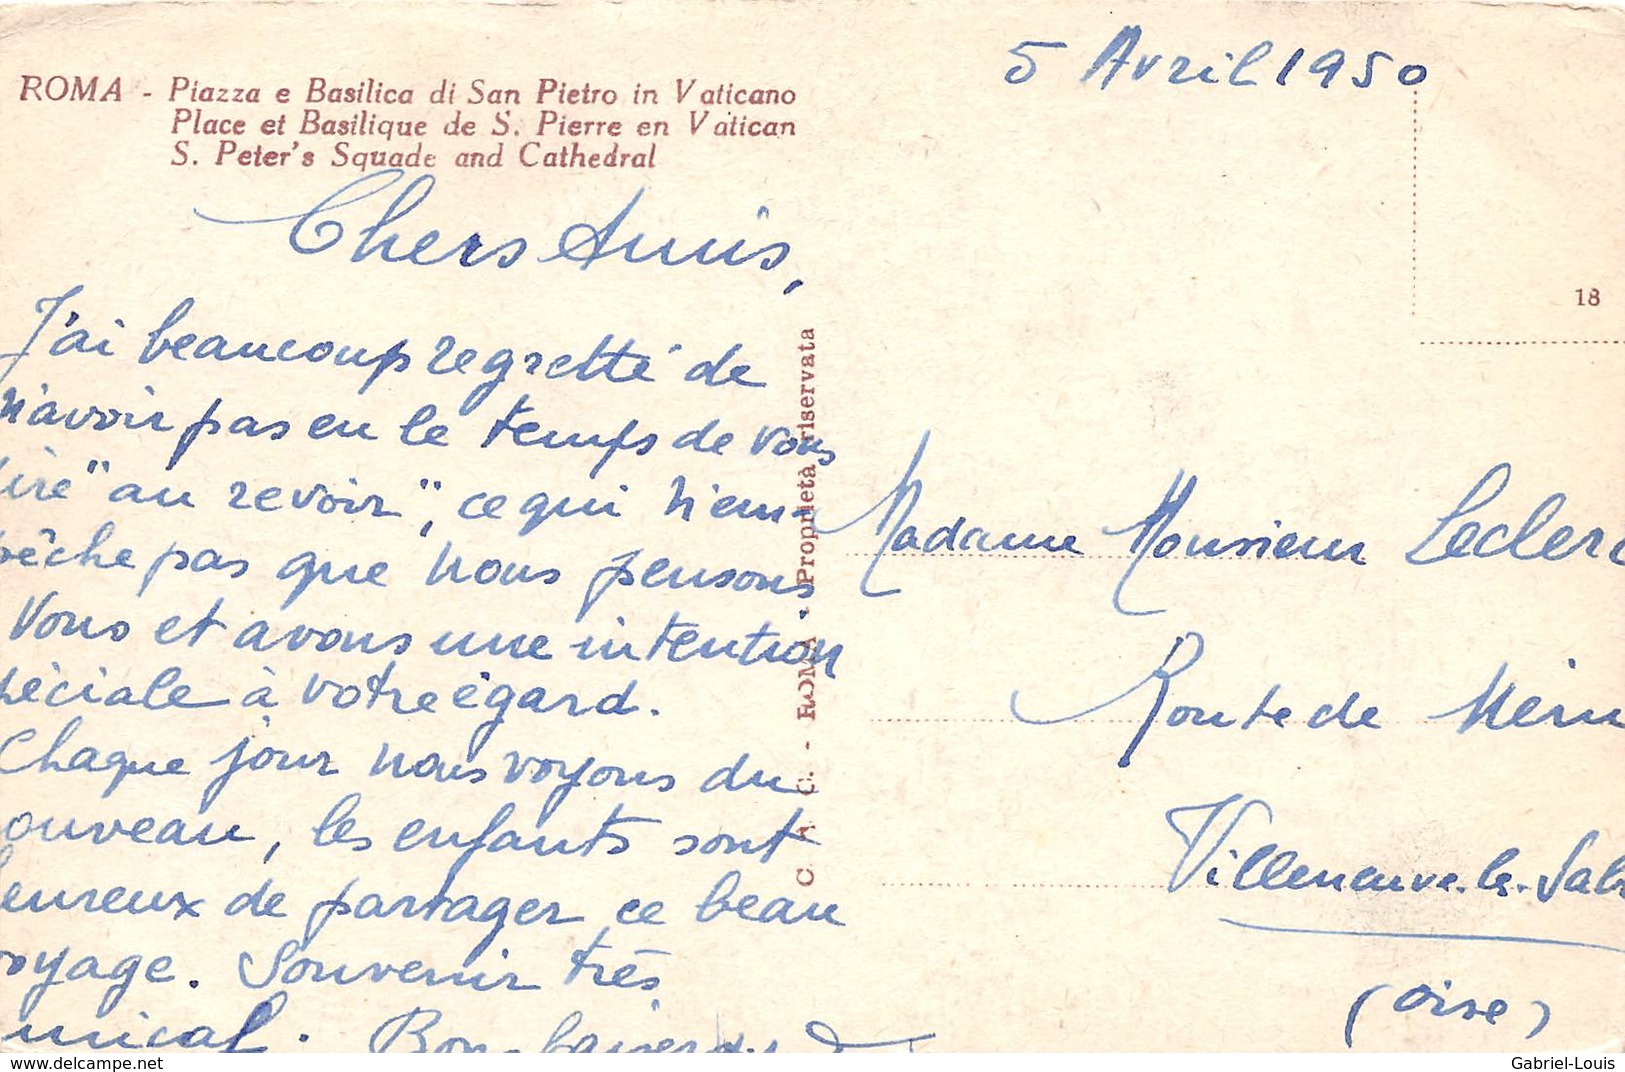 5 Avril 1950
ROMA - Piazza e Basilica di San Pietro in Vaticano
Place et Basilique de S. Pierre en Vatican
S. Peter's Squade and Cathedral
Chers Amis,
J'ai beaucoup regretté de
n'avoir pas eu le temps de vous
ire "au revoir", ce qui n'em-
pêche pas que nous pensons
Vous et avons une intention
péciale à votre égard.
Chaque jour nous voyons du
ouveau, les enfants sont
eureux de partager ce beau
oyage. Souvenir très
mical. Bon
18
Madame Monsieur Leclerc
Route de Méru
Villeneuve-les-Sab
(Oise)
C. A. C. - ROMA - Proprietà riservata
www.delcampe.net
Gabriel-Louis